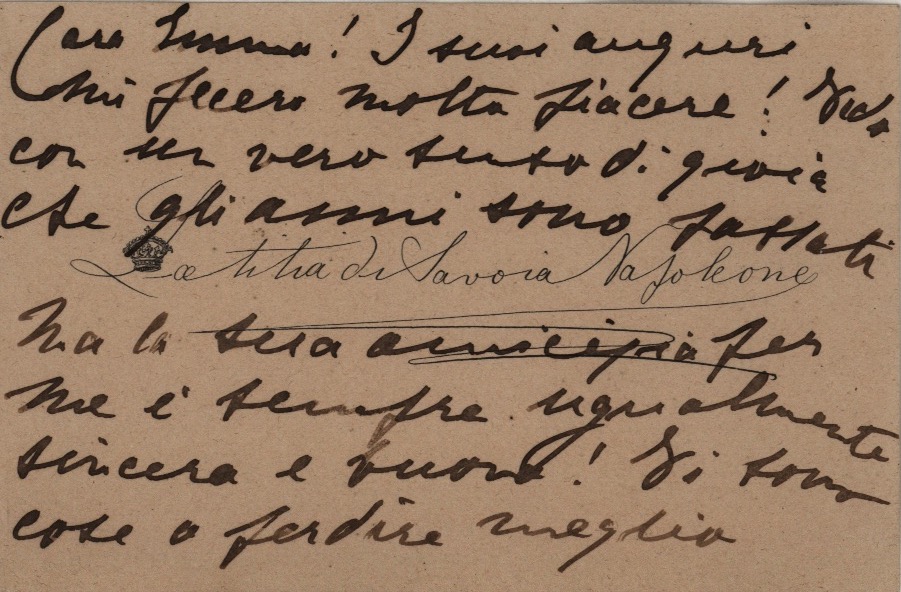 Cara Emma! I suoi auguri
mi fecero molto piacere! Vedo
con un vero senso di gioia
che gli anni sono passati
Lætitia di Savoia Napoleone
Ma la sua amicizia per
me è sempre ugualmente
sincera e buona! Vi sono
cose a